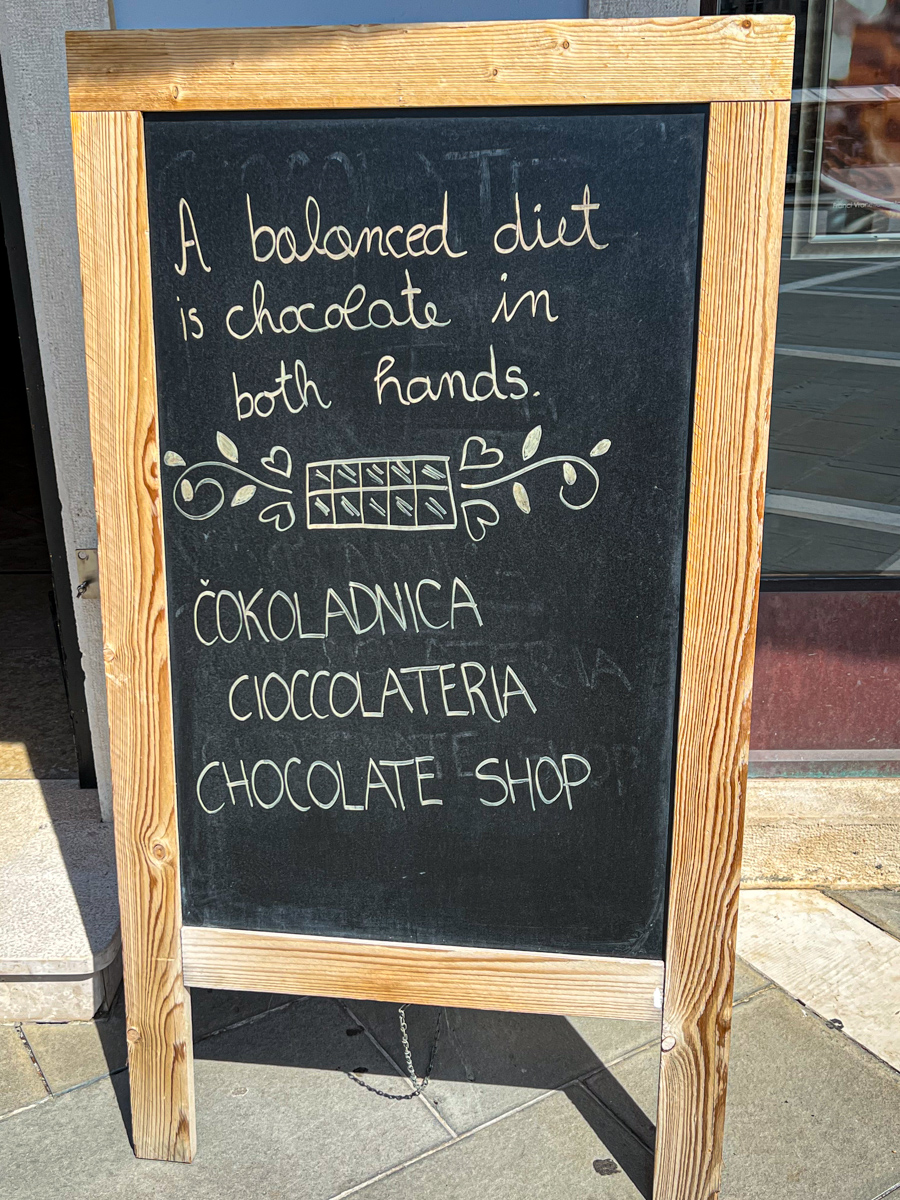 A balanced diet
is chocolate in
both hands.
ČOKOLADNICA
CIOCCOLATERIA
CHOCOLATE SHOP